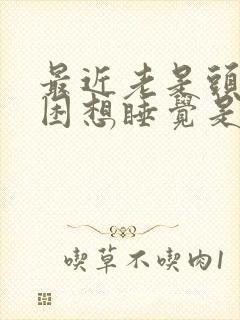 最近老是頭
困想睡覺是
喫草不喫肉1